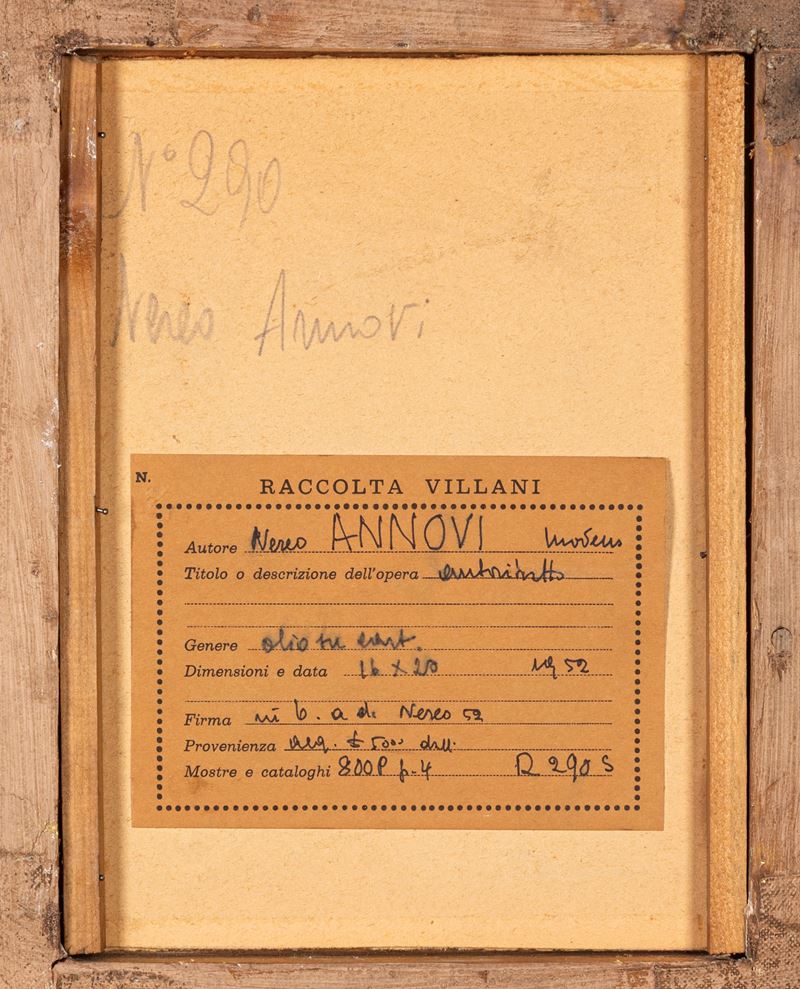 N° 290
Nereo Annovi
N.
RACCOLTA VILLANI
Autore Nereo ANNOVI
Titolo o descrizione dell'opera autoritratto
Genere olio su cart.
Dimensioni e data 16 x 20 1952
Firma in b. a d. Nereo 52
Provenienza acq. £ 5000
Mostre e cataloghi 800P p. 4 R 290 S